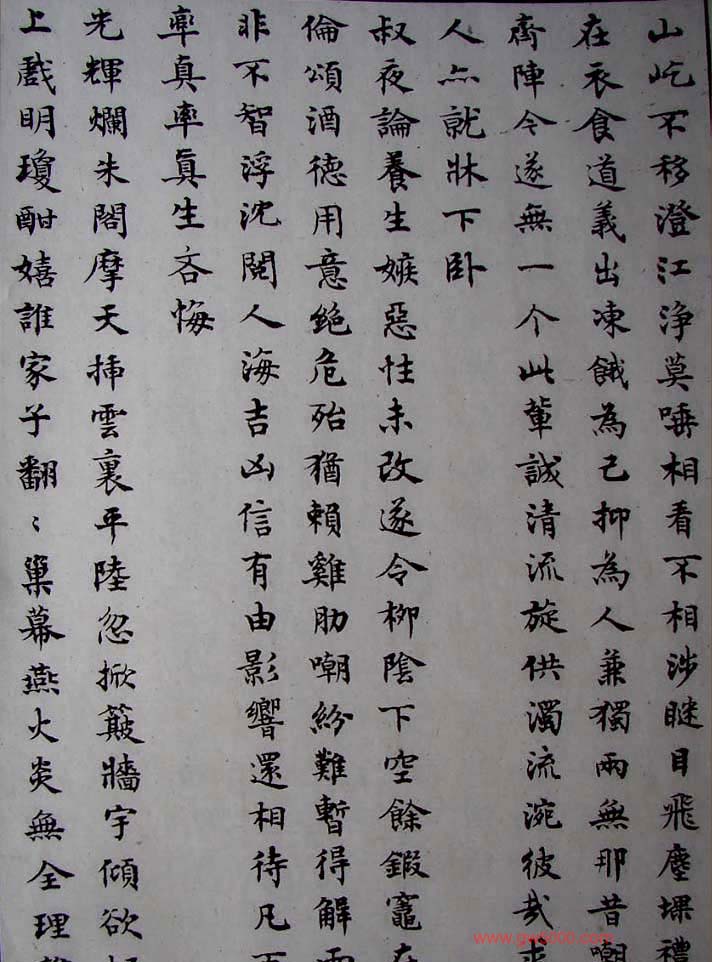 山屹不移澄江浄莫唾相看不相涉瞇目飛塵堁禮
在衣食道義出凍餓為己抑為人兼獨兩無那昔嘲
齊陣令遂無一个此輩誠清流旋供濁流涴彼哉
人亦就牀下卧
叔夜論養生嫉惡性未改遂令柳陰下空餘鍜竈在
倫頌酒德用意絶危殆猶賴雞肋嘲紛難暫得解
非不智浮沈閱人海吉凶信有由影響還相待凡
率真率真生吝悔
光輝爛朱閣摩天揷雲裏平陸忽掀簸牆宇傾欲
上戲明瓊酣嬉誰家子翻〻巢幕燕火炎無全理
www.gw5000.com